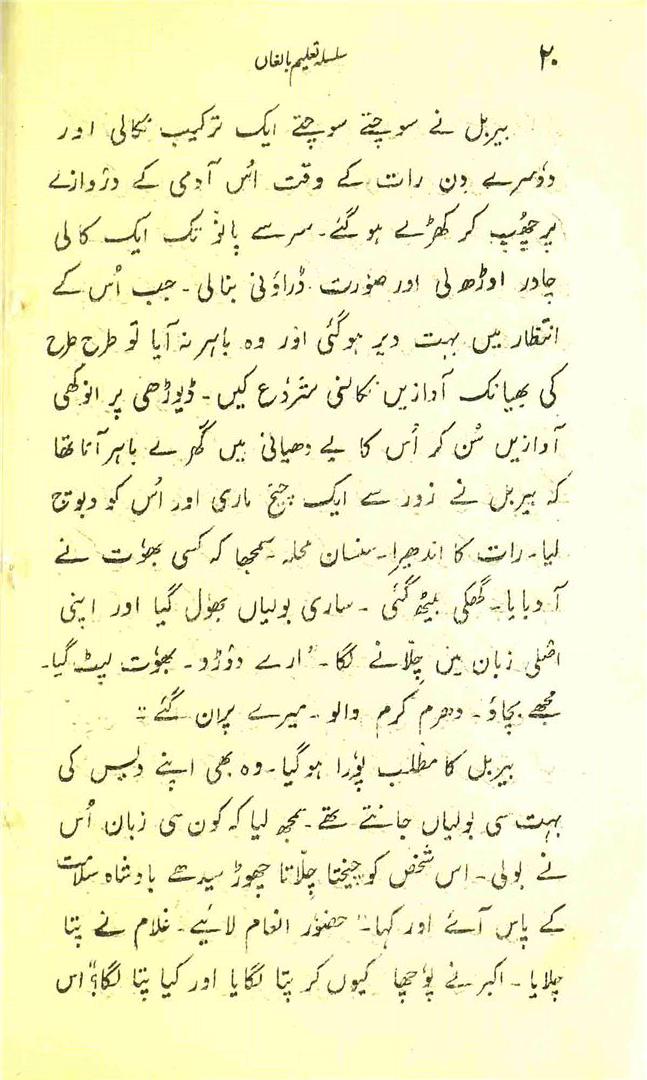 ۲۰
سلسلہ تعلیم بالغاں
بیربل نے سوچتے سوچتے ایک ترکیب نکالی اور
دوسرے دن رات کے وقت اُس آدمی کے دروازے
پر چھُپ کر کھڑے ہو گئے۔ سر سے پانو تک ایک کالی
چادر اوڑھ لی اور صورت ڈراؤنی بنالی۔ جب اُس کے
انتظار میں بہت دیر ہوگئی اور وہ باہر نہ آیا تو طرح طرح
کی بھیانک آوازیں نکالنی شروع کیں۔ ڈیوڑھی پر انوکھی
آوازیں سُن کر اُس کا بے دھیانی میں گھر سے باہر آنا تھا
کہ بیربل نے زور سے ایک چیخ ماری اور اُس کو دبوچ
لیا۔ رات کا اندھیرا۔ سنسان محلہ۔ سمجھا کہ کسی بھوت نے
آ دبایا۔ گھگی بیٹھ گئی ۔ ساری بولیاں بھول گیا اور اپنی
اصلی زبان میں چلّانے لگا۔ "ارے دوڑو۔ بھوت لپٹ گیا۔
مجھے بچاؤ۔ دھرم کرم والو۔ میرے پران گئے"
بیربل کا مطلب پورا ہوگیا۔ وہ بھی اپنے دیس کی
بہت سی بولیاں جانتے تھے۔ سمجھ لیا کہ کون سی زبان اُس
نے بولی۔ اس شخص کو چیختا چلّاتا چھوڑ سیدھے بادشاہ سلامت
کے پاس آئے اور کہا۔ "حضور انعام لائیے۔ غلام نے پتا
چلایا۔ اکبر نے پوچھا کیوں کر پتا لگایا اور کیا پتا لگا؟" اس